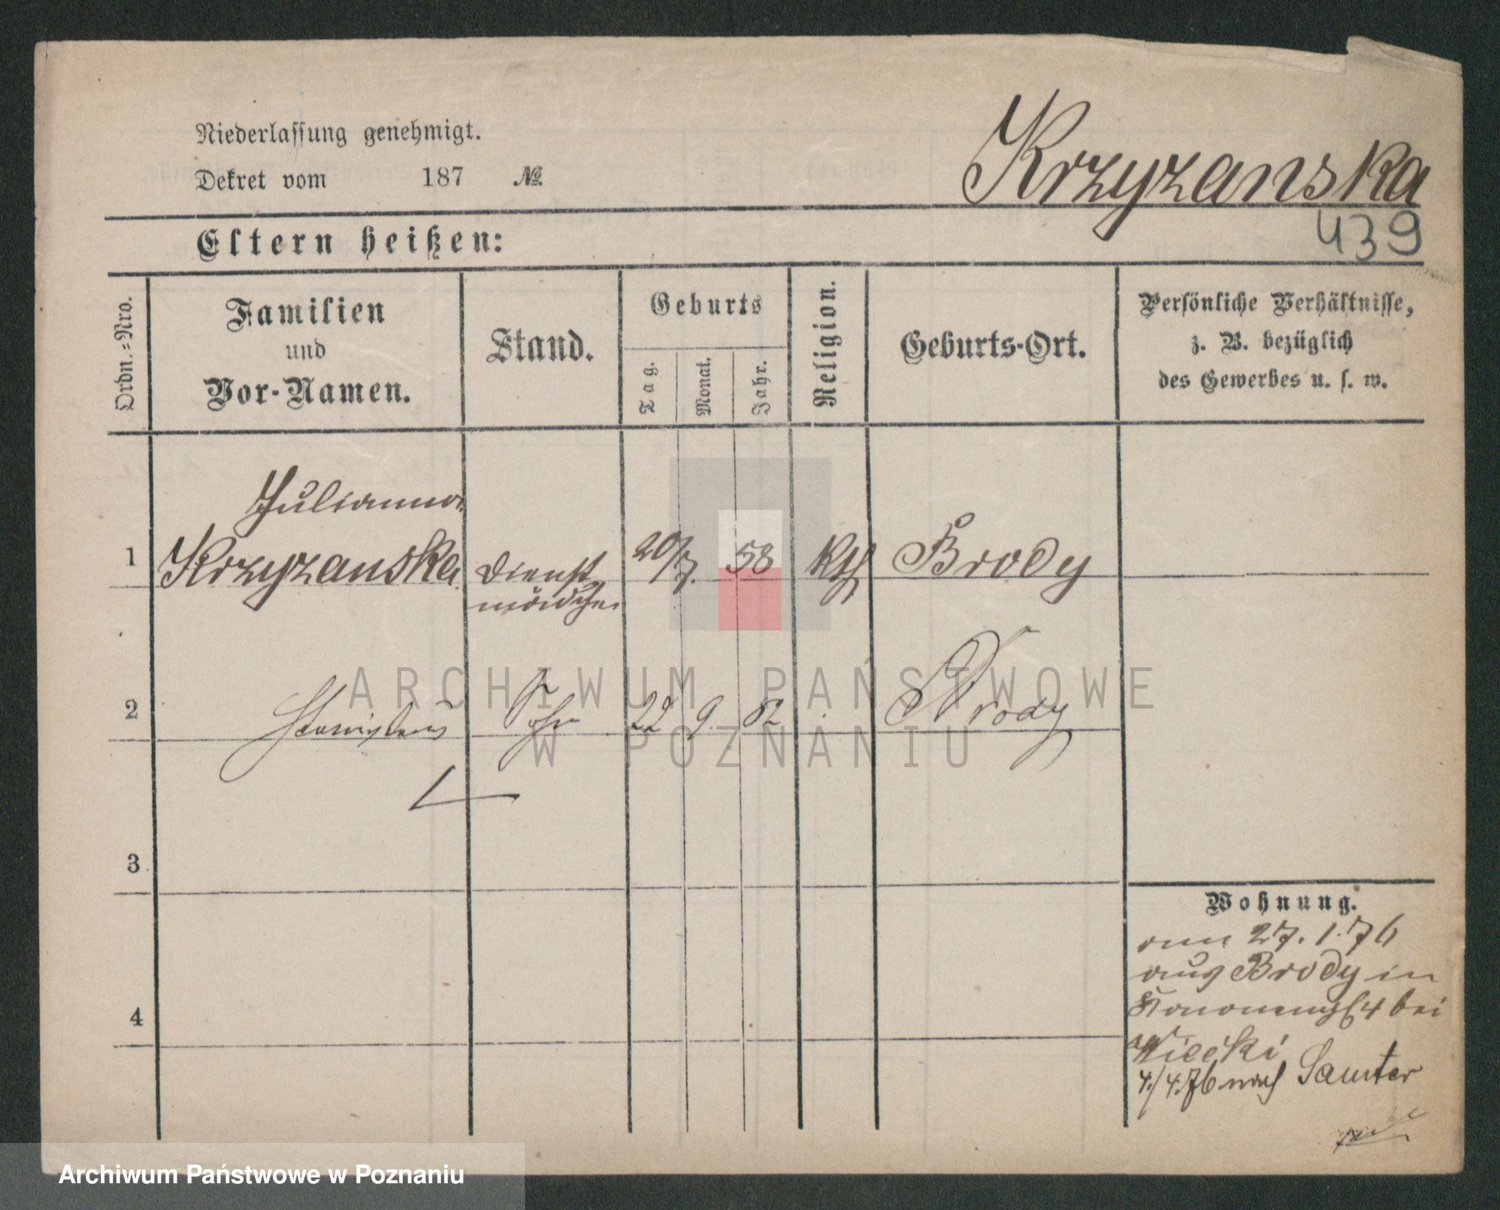 Niederlassung genehmigt.
Dekret vom 187 №
Krzyzanska
439
Eltern heißen:
Ordn.-Nro.
Familien
und
Vor-Namen.
Stand.
Geburts
Tag.
Monat.
Jahr.
Religion.
Geburts-Ort.
Persönliche Verhältnisse,
z. B. bezüglich
des Gewerbes u. s. w.
Julianna
1 Krzyzanska Dienst 20/7. 58 kth Brody
mädchen
2 Stanislaus Sohn 22 9. Brody
3
4
Wohnung.
am 27.1.76
aus Brody in
4 bei
Wiecki
4./4.76 nach Samter
ARCHIWUM PAŃSTWOWE
W POZNANIU
Archiwum Państwowe w Poznaniu